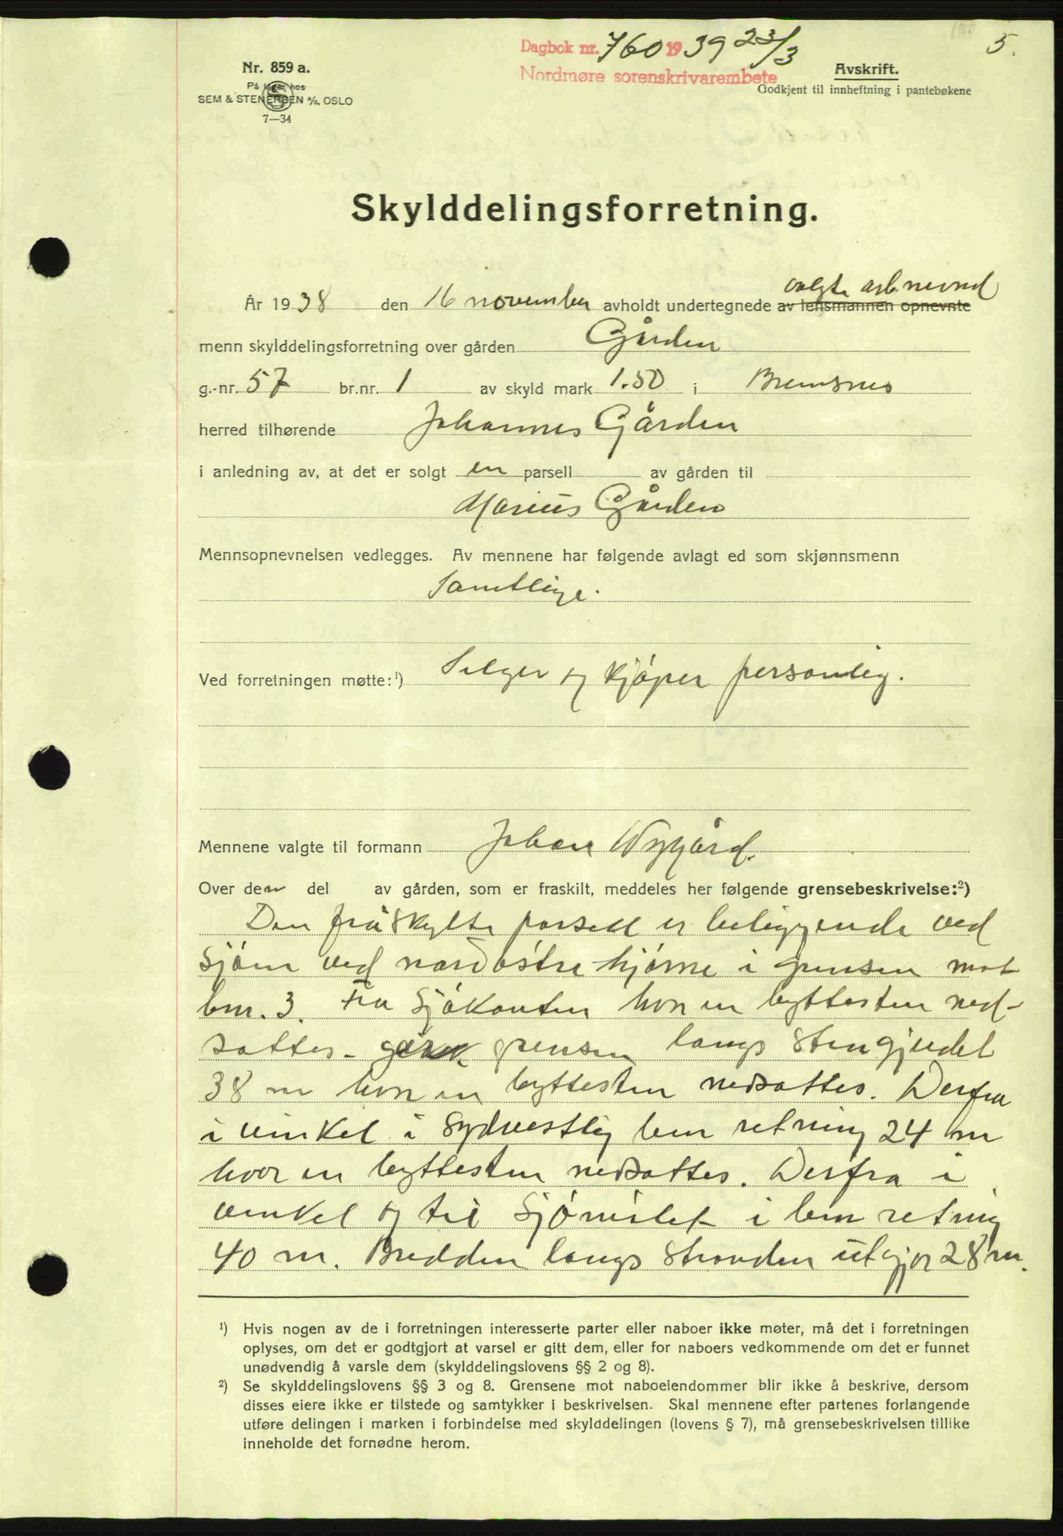 5.
Dagbok nr. 760 1939 23/3
Nordmøre sorenskrivarembete
Nr. 859 a.
På lager hos
SEM & STENERSEN A/S, OSLO
7—34
Avskrift.
Godkjent til innheftning i pantebøkene
Skylddelingsforretning.
valgte arb.nevnd
År 1938 den 16 november avholdt undertegnede av lensmannen opnevnte
menn skylddelingsforretning over gården Gården
g.-nr. 57 br.nr. 1 av skyld mark 1.50 i Bremsnes
herred tilhørende Johannes Gården
i anledning av, at det er solgt en parsell av gården til
Marius Gården
Mennsopnevnelsen vedlegges. Av mennene har følgende avlagt ed som skjønnsmenn
Samtlige.
Ved forretningen møtte:¹) Selger og kjøper personlig.
Mennene valgte til formann Johan Nygård.
Over den del av gården, som er fraskilt, meddeles her følgende grensebeskrivelse:²)
Den fråskylte parsell er beliggende ved
sjøen ved nordøstre hjørne i grensen mot
bnr. 3. Fra sjøkanten hvor en byttesten ned-
sattes - grensen langs stengjerdet
38 m hvor en byttesten nedsattes. Derfra
i vinkel i sydvestlig len retning 24 m
hvor en byttesten nedsattes. Derfra i
vinkel og til sjø i len retning
40 m. Bredden langs stranden utgjør 28 m.
¹) Hvis nogen av de i forretningen interesserte parter eller naboer ikke møter, må det i forretningen
oplyses, om det er godtgjort at varsel er gitt dem, eller for naboers vedkommende om det er funnet
unødvendig å varsle dem (skylddelingslovens §§ 2 og 8).
²) Se skylddelingslovens §§ 3 og 8. Grensene mot naboeiendommer blir ikke å beskrive, dersom
disses eiere ikke er tilstede og samtykker i beskrivelsen. Skal mennene efter partenes forlangende
utføre delingen i marken i forbindelse med skylddelingen (lovens § 7), må grensebeskrivelsen tillike
inneholde det fornødne herom.